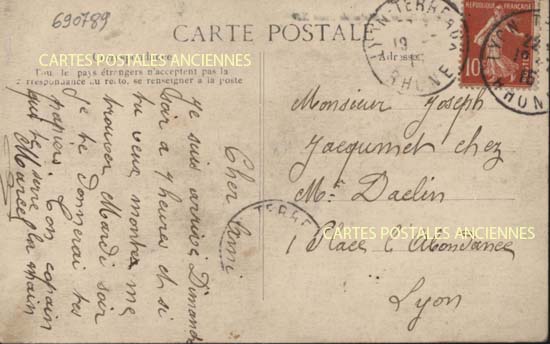 690789
CARTE POSTALE
Correspondance
Tous les pays étrangers n'acceptent pas la
correspondance au recto, se renseigner à la poste
Adresse
LYON-TERREAUX
19
RHONE
RÉPUBLIQUE FRANÇAISE
10c
LYON
RHONE
Cher Ami
Je suis arrivé Dimanche
soir a 7 heures et si
tu veux montes me
trouver Mardi soir
je te Donnerai tes
papiers. Ton copain
qui te serre la main
Marcel
Monsieur Joseph
Jacquemet chez
Mr Daclin
1 Place l'Abondance
Lyon
TERRE
CARTES POSTALES ANCIENNES
CARTES POSTALES ANCIENNES